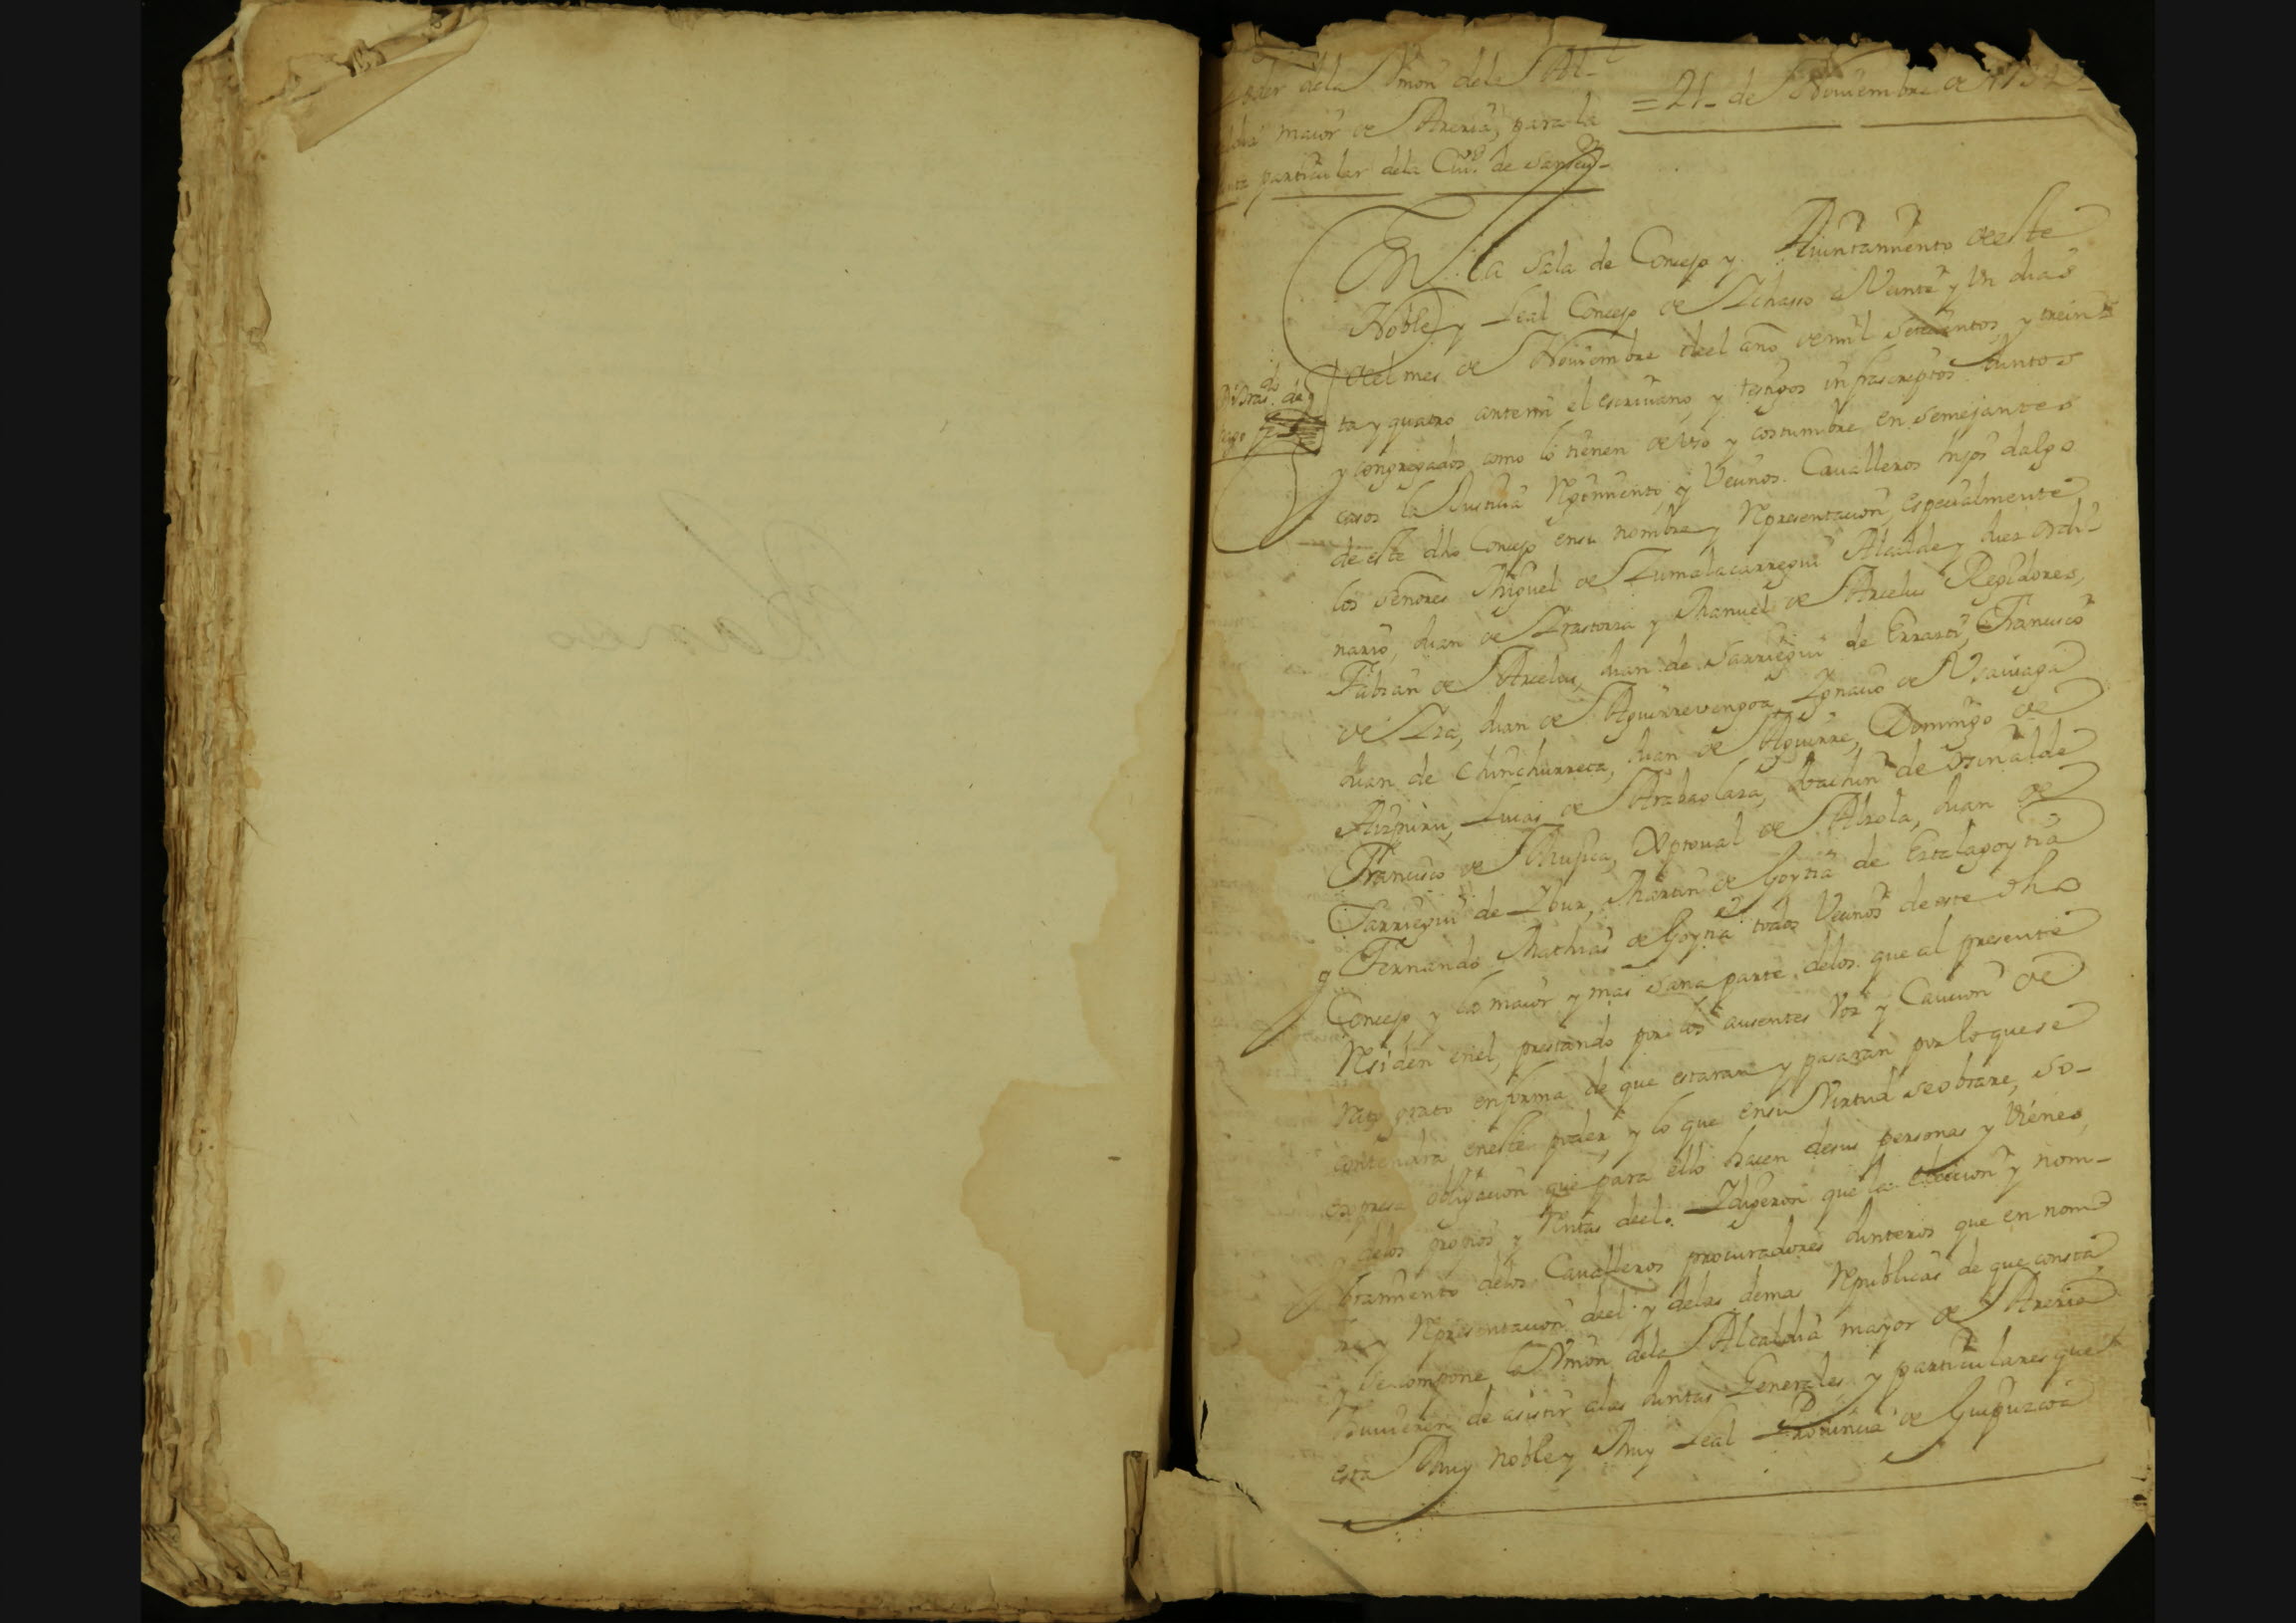 Poder dela Vnion dela Al-
caldia maior de Areria, para la
Junta particular dela Ciud. de San Seu-
= 21- de Nouiembre de 1734-
En la Sala de Concejo y Aiuntamiento de este
Noble y Leal Concejo de Ichasso a Veinte y Vn dias
del mes de Nouiembre del año de mil setecientos, y trein-
ta y quatro ante mi el escriuano, y testigos infrascriptos Juntos
y congregados como lo tienen de Vso y costumbre en semejantes
casos la Justicia Rejimiento, y Vecinos Caualleros hijos dalgo
de este dho Concejo en su nombre y Representacion, especialmente
los señores Miguel de Zumalacarregui Alcalde y Juez ordi-
nario, Juan de Irastorza y Manuel de Arcelus Regidores,
Fabian de Arcelus, Juan de Sarriegui de Errazti, Francisco
de Iza, Juan de Aguirrevengoa, Ignacio de Vsauiaga
Juan de Chinchurreta, Juan de Aguirre, Domingo de
Aizpuru, Lucas de Arabaolaza, Joachin de Osinalde
Francisco de Mujica, Xptoual de Alzola, Juan de
Sarriegui de Ibur, Martin de Goytia de Estalagoytia
y Fernando Mathias de Goytia todos Vecinos de este dho
Concejo y la maior y mas sana parte delos que al presente
Residen en el, prestando por los ausentes Voz y Caucion de
Rato grato en forma de que estaran y pasaran por lo que se
contendra en este poder, y lo que en su Virtud se obrare, so-
expresa obligacion que para ello hacen de sus personas y Vienes,
y delos propios y Rentas deel. Y digeron que la eleccion y nom-
bramiento delos Caualleros procuradores Junteros que en nom-
bre y Representacion deel y delas demas Republicas de que consta,
y se compone la Vnion dela Alcaldia mayor de Areria
huuieren de asistir alas Juntas Generales y particulares que
esta Muy noble y Muy Leal Prouincia de Guipuzcoa